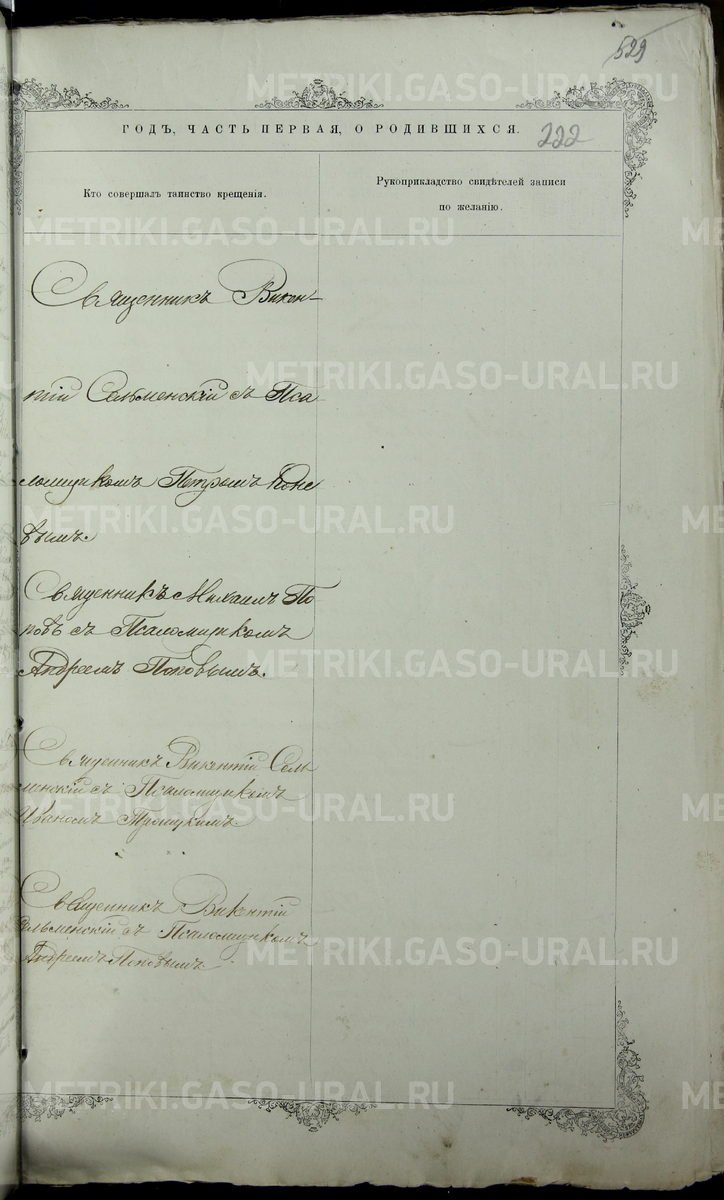 529
ГОДЪ, ЧАСТЬ ПЕРВАЯ, О РОДИВШИХСЯ. 222
Кто совершалъ таинство крещенія.
Рукоприкладство свидѣтелей записи
по желанію.
Священникъ Викен-
тій Сельменскій съ Пса
ломщикомъ Петромъ Коне
вымъ.
Священникъ Михаилъ По-
повъ съ Псаломщикомъ
Андреемъ Поповымъ.
Священникъ Викентій Сель
менскій съ Псаломщикомъ
Иваномъ Троицкимъ
Священникъ Викентій
Сельменскій съ Псаломщикомъ
Андреемъ Поповымъ
METRIKI.GASO-URAL.RU